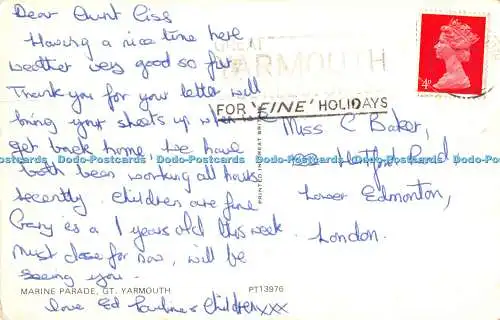 Dear Aunt Ciss
Having a nice time here
weather very good so far
Thank you for your letter will
bring your sheets up when we
get back home. We have
both been working all hours
recently. Children are fine
Gary is a 1 years old this week
Must close for now, will be
seeing you.
MARINE PARADE, GT. YARMOUTH
PT13976
love Ed Pauline & Children xxx
GREAT
YARMOUTH
FOR 'FINE' HOLIDAYS
4D
PRINTED IN GREAT BRITAIN
Miss C Baker,
Hertford Road
Lower Edmonton,
London.
Dodo-Postcards Dodo-Postcards Dodo-Postcards Dodo-Postcards Dodo-Postcards